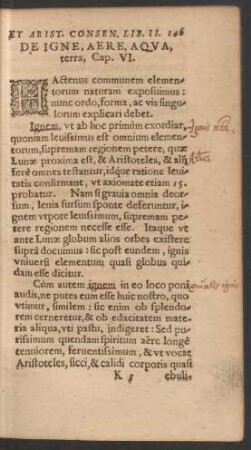 ET ARIST. CONSEN. LIB. II. 146
DE IGNE, AERE, AQVA,
terra, Cap. VI.
HActenus communem elemen-
torum naturam exposuimus:
nunc ordo, forma, ac vis singu-
lorum explicari debet.
Ignem, vt ab hoc primùm exordiar,
quoniam leuissimus est omnium elemen-
torum, supremam regionem petere, quæ
Lunæ proxima est, & Aristoteles, & alij
ferè omnes testantur, idque ratione leui-
tatis confirmant, vt axiomate etiam 25.
probatur. Nam si grauia omnia deor-
sum, leuia sursum sponte deferuntur, i-
gnem vtpote leuissimum, supremam pe-
tere regionem necesse esse. Itaque vt
ante Lunæ globum alios orbes existere
suprà docuimus: sic post eundem, ignis
vniuersi elementum quasi globus qui-
dam esse dicitur.
Cùm autem ignem in eo loco poni
audis, ne putes eum esse huic nostro, quo
vtimur, similem: sic enim ob splendo-
rem cerneretur, & ob edacitatem mate-
ria aliqua, vt pastu, indigeret: Sed pu-
rissimum quendam spiritum aëre longè
tenuiorem, feruentissimum, & vt vocat
Aristoteles, sicci, & calidi corporis quasi
K ebulli-